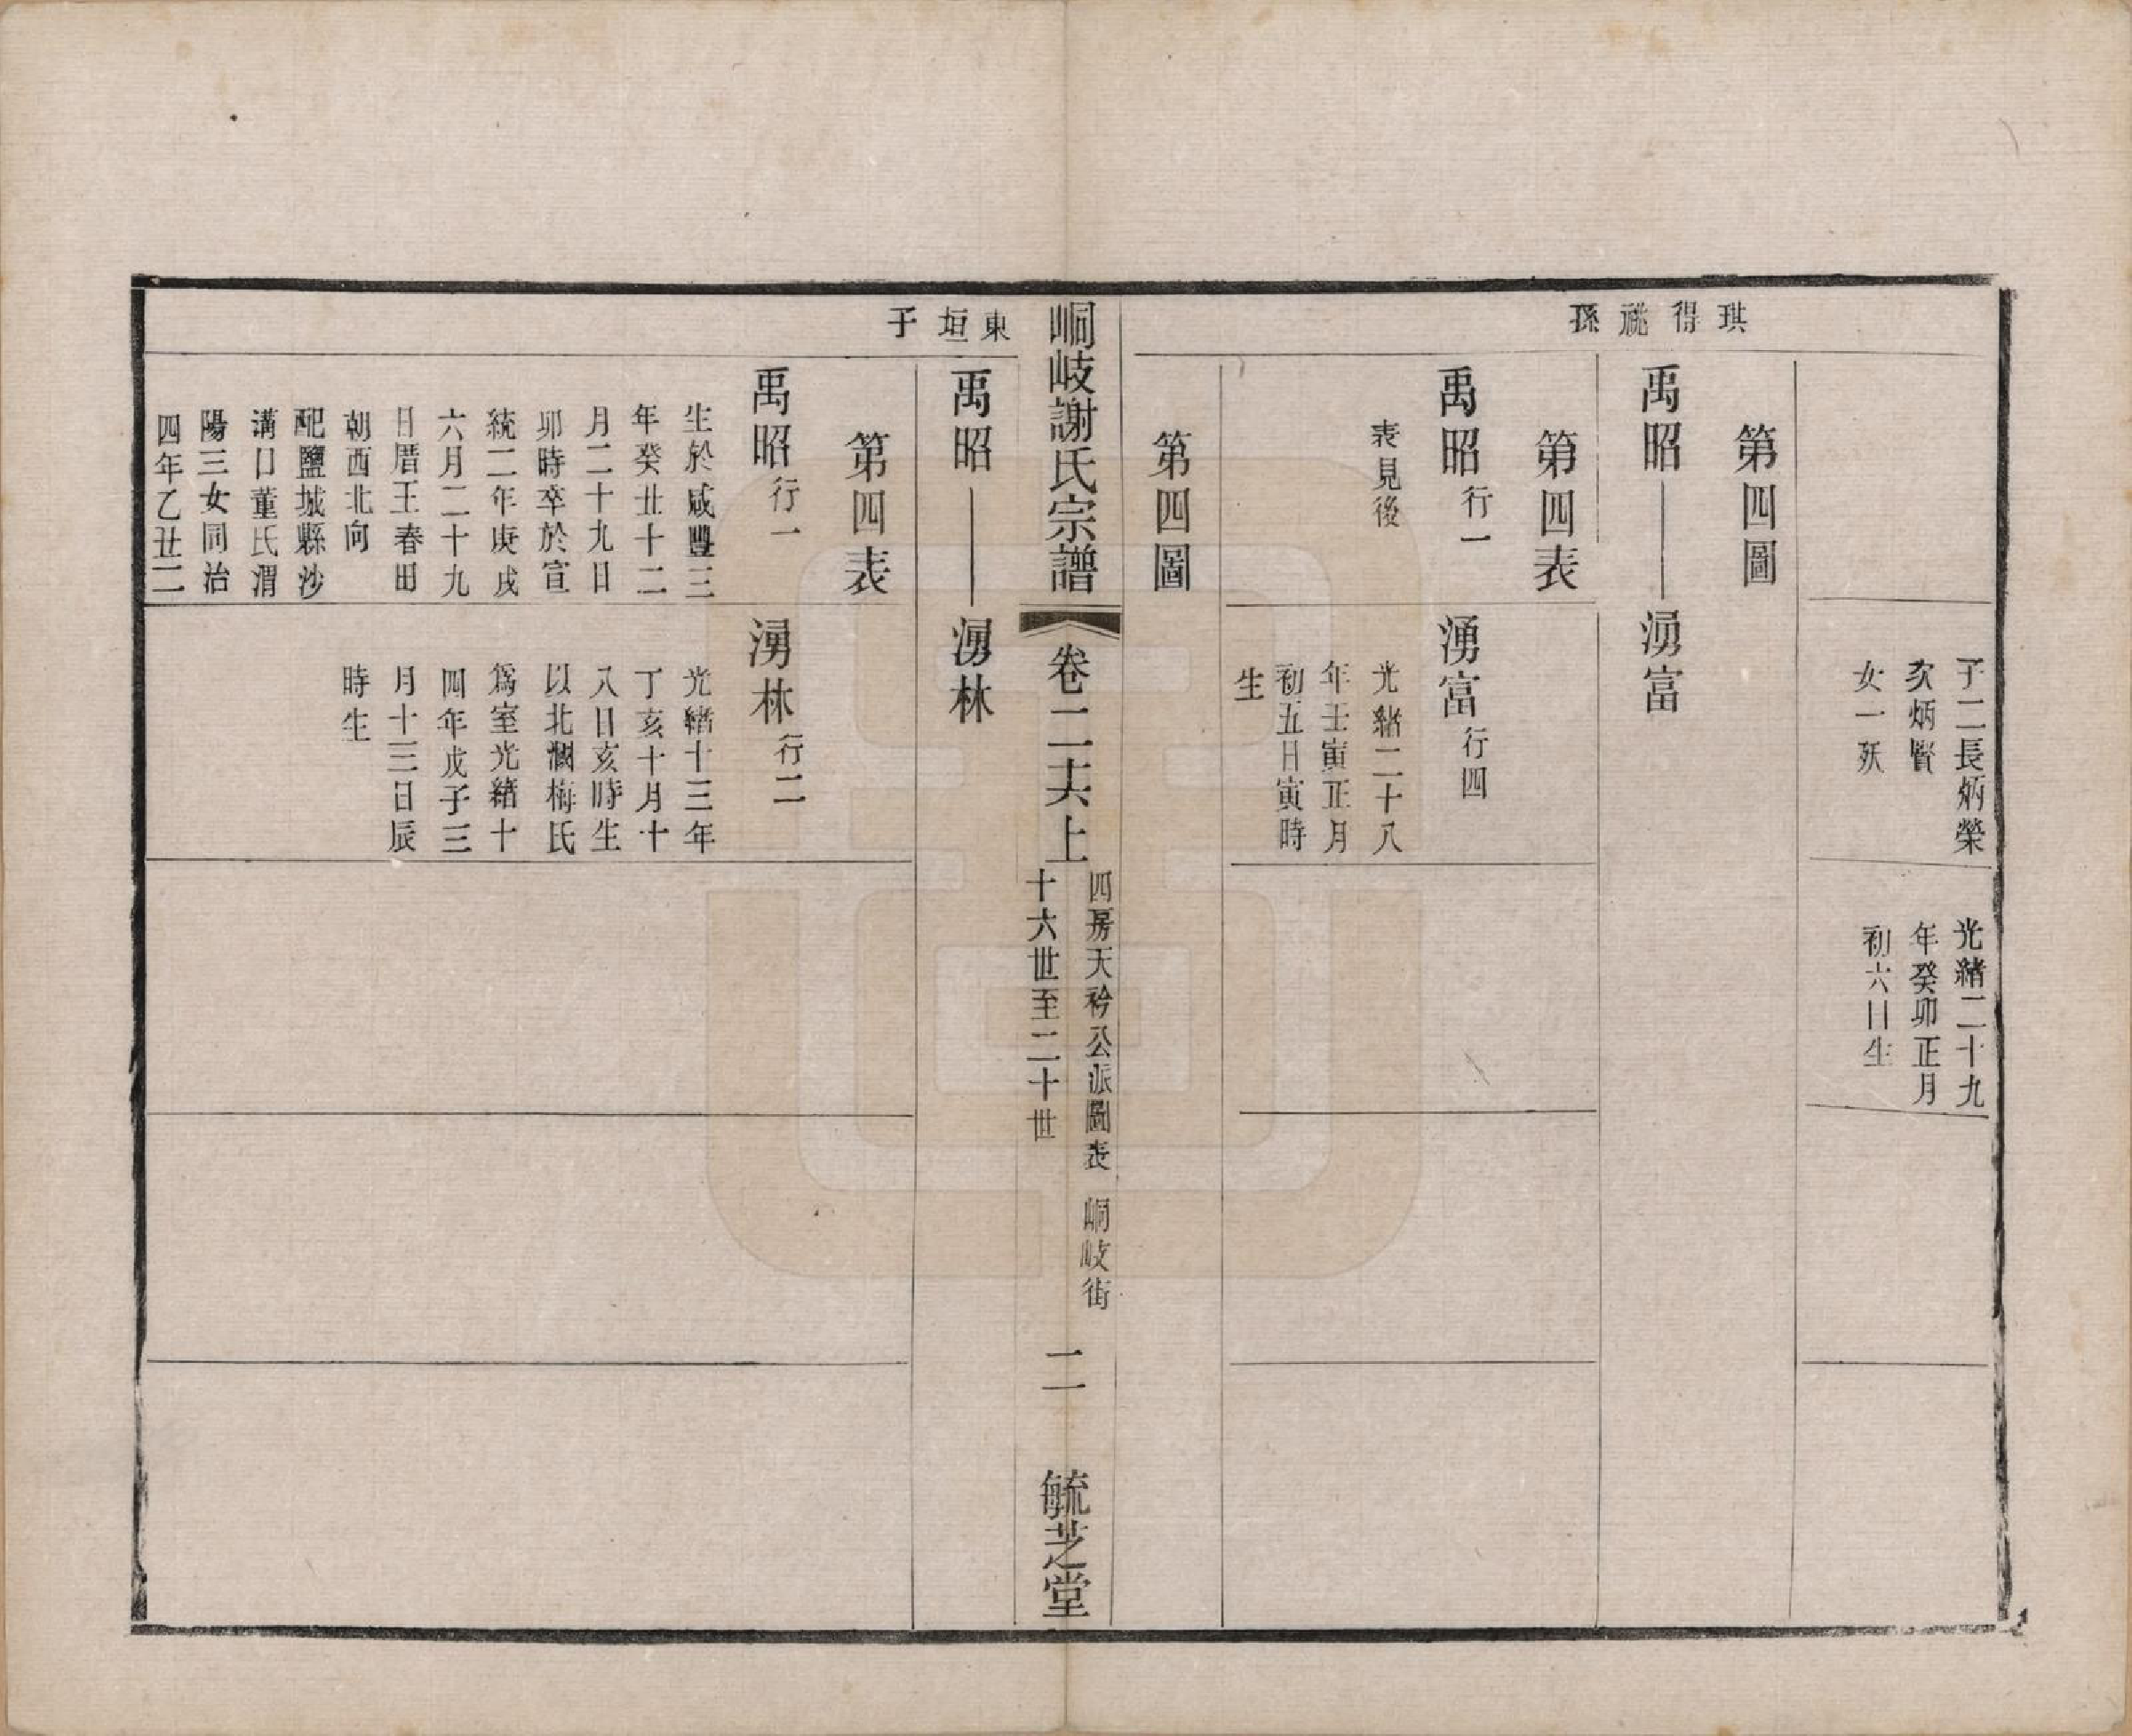 子二長炳榮
次炳賢
女一殀
光緒二十九
年癸卯正月
初六日生
琪得祧孫
第四圖
禹昭——湧富
第四表
禹昭行一
表見後
湧富行四
光緒二十八
年壬寅正月
初五日寅時
生
第四圖
峒岐謝氏宗譜
卷二十六上
四房天衿公派圖表 峒岐街
十六世至二十世
二
毓芝堂
東垣子
禹昭——湧林
第四表
禹昭行一
生於咸豐三
年癸丑十二
月二十九日
卯時卒於宣
統二年庚戌
六月二十九
日厝王春田
朝西北向
配鹽城縣沙
溝口董氏渭
陽三女同治
四年乙丑二
湧林行二
光緒十三年
丁亥十月十
八日亥時生
以北澗梅氏
爲室光緒十
四年戊子三
月十三日辰
時生